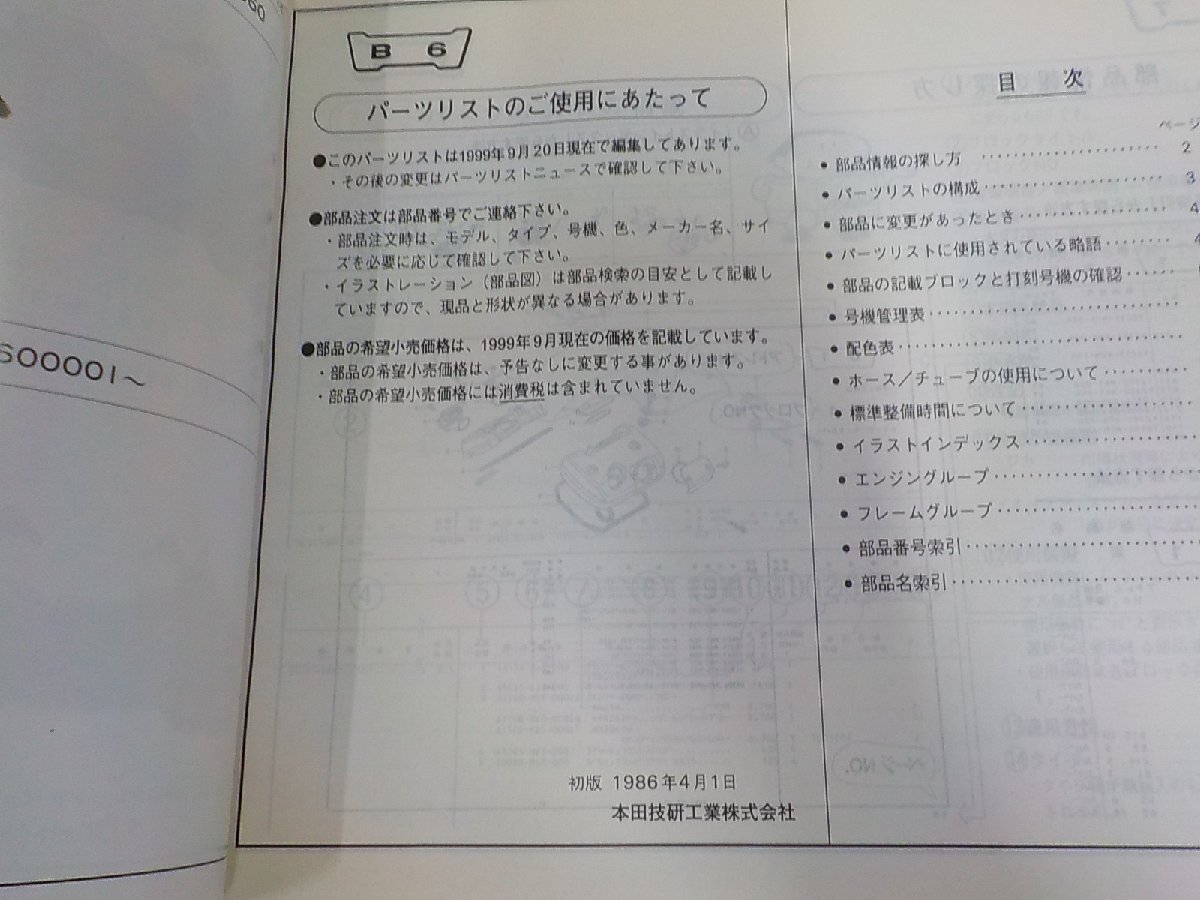 60
600001～
B 6
パーツリストのご使用にあたって
●このパーツリストは1999年9月20日現在で編集してあります。
・その後の変更はパーツリストニュースで確認して下さい。
●部品注文は部品番号でご連絡下さい。
・部品注文時は、モデル、タイプ、号機、色、メーカー名、サイ
ズを必要に応じて確認して下さい。
・イラストレーション（部品図）は部品検索の目安として記載し
ていますので、現品と形状が異なる場合があります。
●部品の希望小売価格は、1999年9月現在の価格を記載しています。
・部品の希望小売価格は、予告なしに変更する事があります。
・部品の希望小売価格には消費税は含まれていません。
初版 1986年4月1日
本田技研工業株式会社
目 次
ページ
●部品情報の探し方 ‥‥‥‥‥‥‥‥ 2
●パーツリストの構成‥‥‥‥‥‥‥‥ 3
●部品に変更があったとき‥‥‥‥‥‥ 4
●パーツリストに使用されている略語‥‥‥ 4
●部品の記載ブロックと打刻号機の確認‥‥
●号機管理表‥‥‥‥‥‥‥‥‥‥
●配色表‥‥‥‥‥‥‥‥‥‥‥
●ホース／チューブの使用について‥‥‥‥
●標準整備時間について‥‥‥‥‥‥
●イラストインデックス‥‥‥‥‥‥
●エンジングループ‥‥‥‥‥‥‥
●フレームグループ‥‥‥‥‥‥‥
●部品番号索引‥‥‥‥‥‥‥‥
●部品名索引‥‥‥‥‥‥‥‥‥